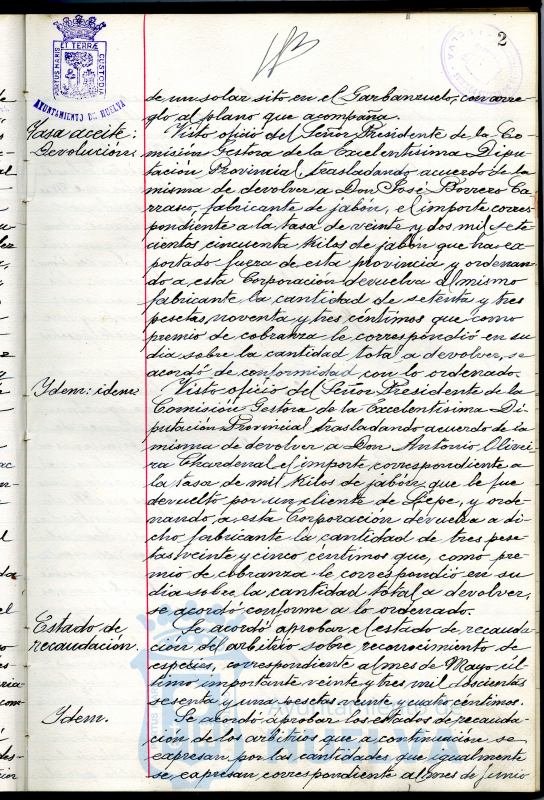 2
PORTUS MARIS ET TERRÆ CUSTODIA
AYUNTAMIENTO DE HUELVA
de un solar sito en el Garbanzuelo, con arre-
glo al plano que acompaña.
Tasa aceite:
Devolución:
Visto oficio del Señor Presidente de la Co-
misión Gestora de la Excelentísima Dipu-
tación Provincial, trasladando acuerdo de la
misma de devolver a Don José Borrero Ca-
rrasco, fabricante de jabón, el importe corres-
pondiente a la tasa de veinte y dos mil sete-
cientos cincuenta kilos de jabón que ha ex-
portado fuera de esta provincia y ordenan-
do a esta Corporación devuelva al mismo
fabricante la cantidad de setenta y tres
pesetas, noventa y tres céntimos que como
premio de cobranza le correspondió en su
dia sobre la cantidad total a devolver, se
acordó de conformidad con lo ordenado.
Ydem: idem:
Visto oficio del Señor Presidente de la
Comisión Gestora de la Excelentísima Di-
putación Provincial trasladando acuerdo de la
misma de devolver a Don Antonio Olivei-
ra Chardenal el importe correspondiente a
la tasa de mil kilos de jabón que le fue
devuelto por un cliente de Lepe, y orde-
nando a esta Corporación devuelva a di-
cho fabricante la cantidad de tres pese-
tas veinte y cinco céntimos que, como pre-
mio de cobranza le correspondió en su
dia sobre la cantidad total a devolver,
se acordó conforme a lo ordenado.
Estado de
recaudación.
Se acordó aprobar el estado de recauda-
ción del arbitrio sobre reconocimiento de
especies, correspondiente al mes de Mayo, úl-
timo importante veinte y tres mil doscientas
sesenta y una pesetas veinte y cuatro céntimos.
Ydem.
Se acordó aprobar los estados de recauda-
ción de los arbitrios que a continuación se
expresan, por las cantidades que igualmente
se expresan correspondiente al mes de junio
Ayuntamiento de
HUELVA